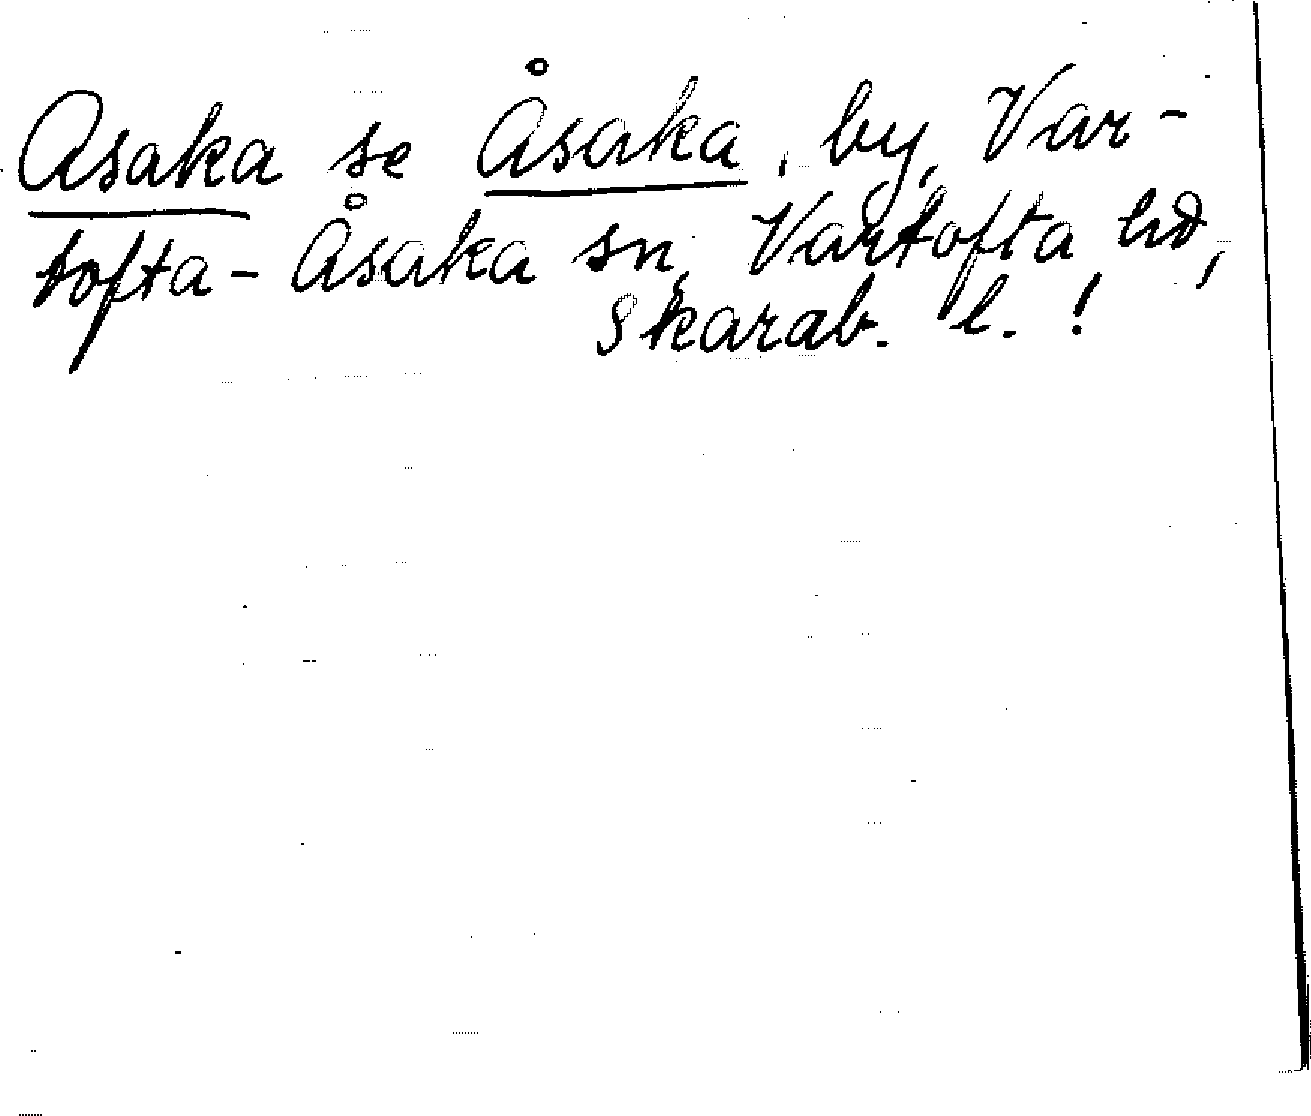 Asaka se Åsaka, by, Var-
tofta-Åsaka sn, Vartofta hd,
Skarab. l. !